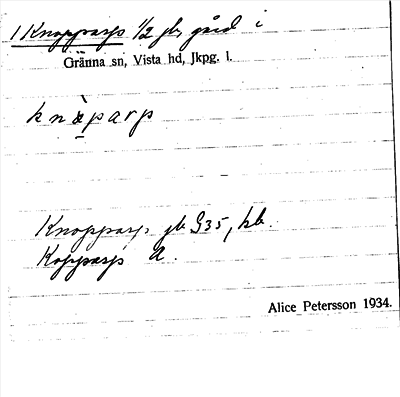 1 Knopparp 1/2 jb, gård i
Gränna sn, Vista hd, Jkpg. l.
knàparp
Knopparp jb G35, hb.
Kopparp A.
Alice Petersson 1934.